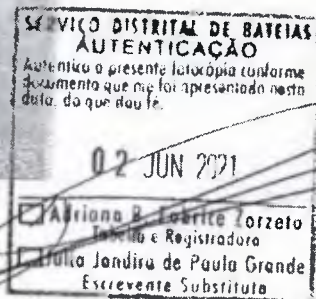 SERVIÇO DISTRITAL DE BATEIAS
AUTENTICAÇÃO
Autentico a presente fotocópia conforme
documento que me foi apresentado nesta
data, do que dou fé.
02 JUN 2021
Adriana B. Zorzeto
Tabeliã e Registradora
Julia Jandira de Paula Grande
Escrevente Substituta